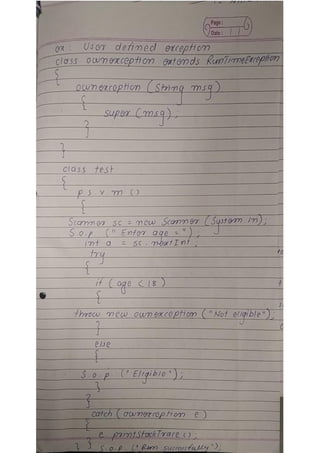 Page :
Date : / /
ex : User defined exception
class ownexception extends RunTimeException
{
ownexception (String msg)
{
super (msg);
}
}
class test
{
p s v m ()
{
Scanner sc = new Scanner (System in);
S.o.p (" Enter age = ");
int a = sc. nextInt;
try
{
if ( age < 18 )
{
throw new ownexception ("Not eligible");
}
else
{
S.o.p ("Eligible");
}
}
catch ( ownexception e)
{
e printStackTrace ();
} } S.o.p ("Run successfully");